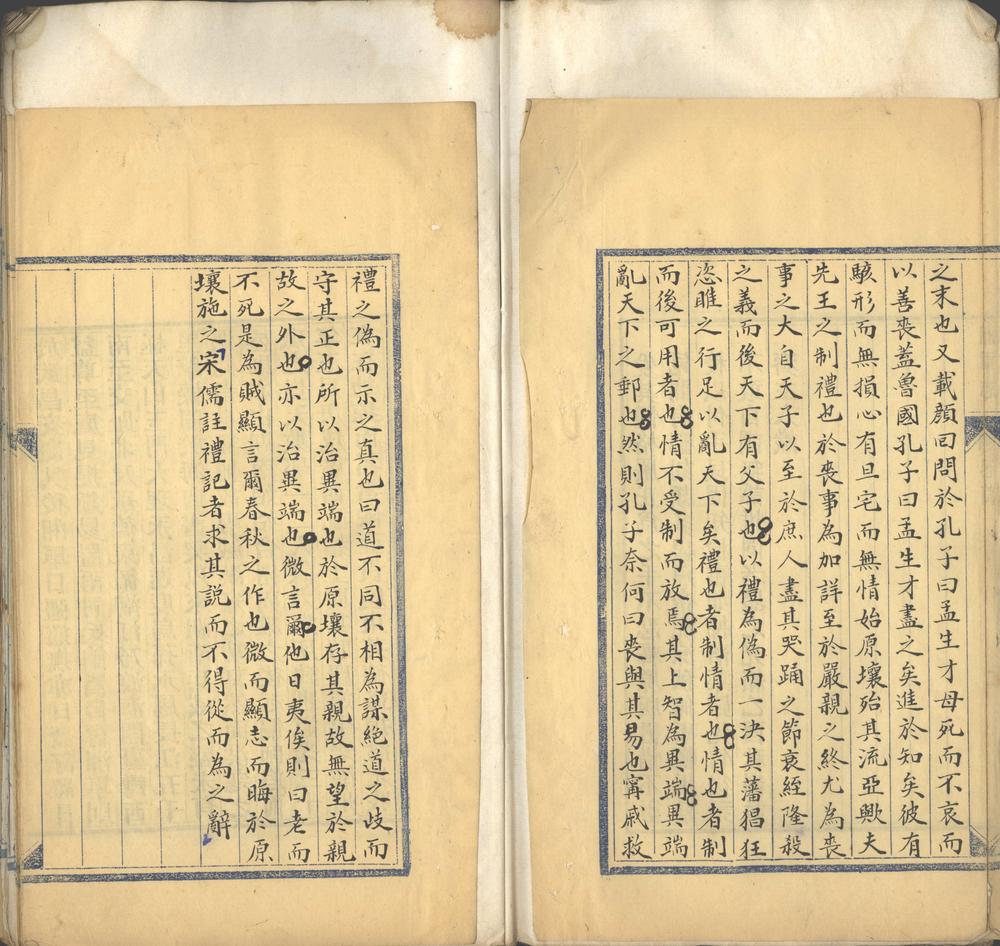 之末也又載顔回問於孔子曰孟生才母死而不哀而
以善喪蓋魯國孔子曰孟生才盡之矣進於知矣彼有
駭形而無損心有旦宅而無情始原壤殆其流亞歟夫
先王之制禮也於喪事為加詳至於嚴親之終尤為喪
事之大自天子以至於庶人盡其哭踊之節衰絰隆殺
之義而後天下有父子也以禮為偽而一決其藩猖狂
恣睢之行足以亂天下矣禮也者制情者也情也者制
而後可用者也情不受制而放焉其上智為異端異端
亂天下之郵也然則孔子奈何曰喪與其易也寧戚救
禮之偽而示之真也曰道不同不相為謀絶道之歧而
守其正也所以治異端也於原壤存其親故無望於親
故之外也亦以治異端也微言爾他日夷俟則曰老而
不死是為賊顯言爾春秋之作也微而顯志而晦於原
壤施之宋儒註禮記者求其説而不得從而為之辭